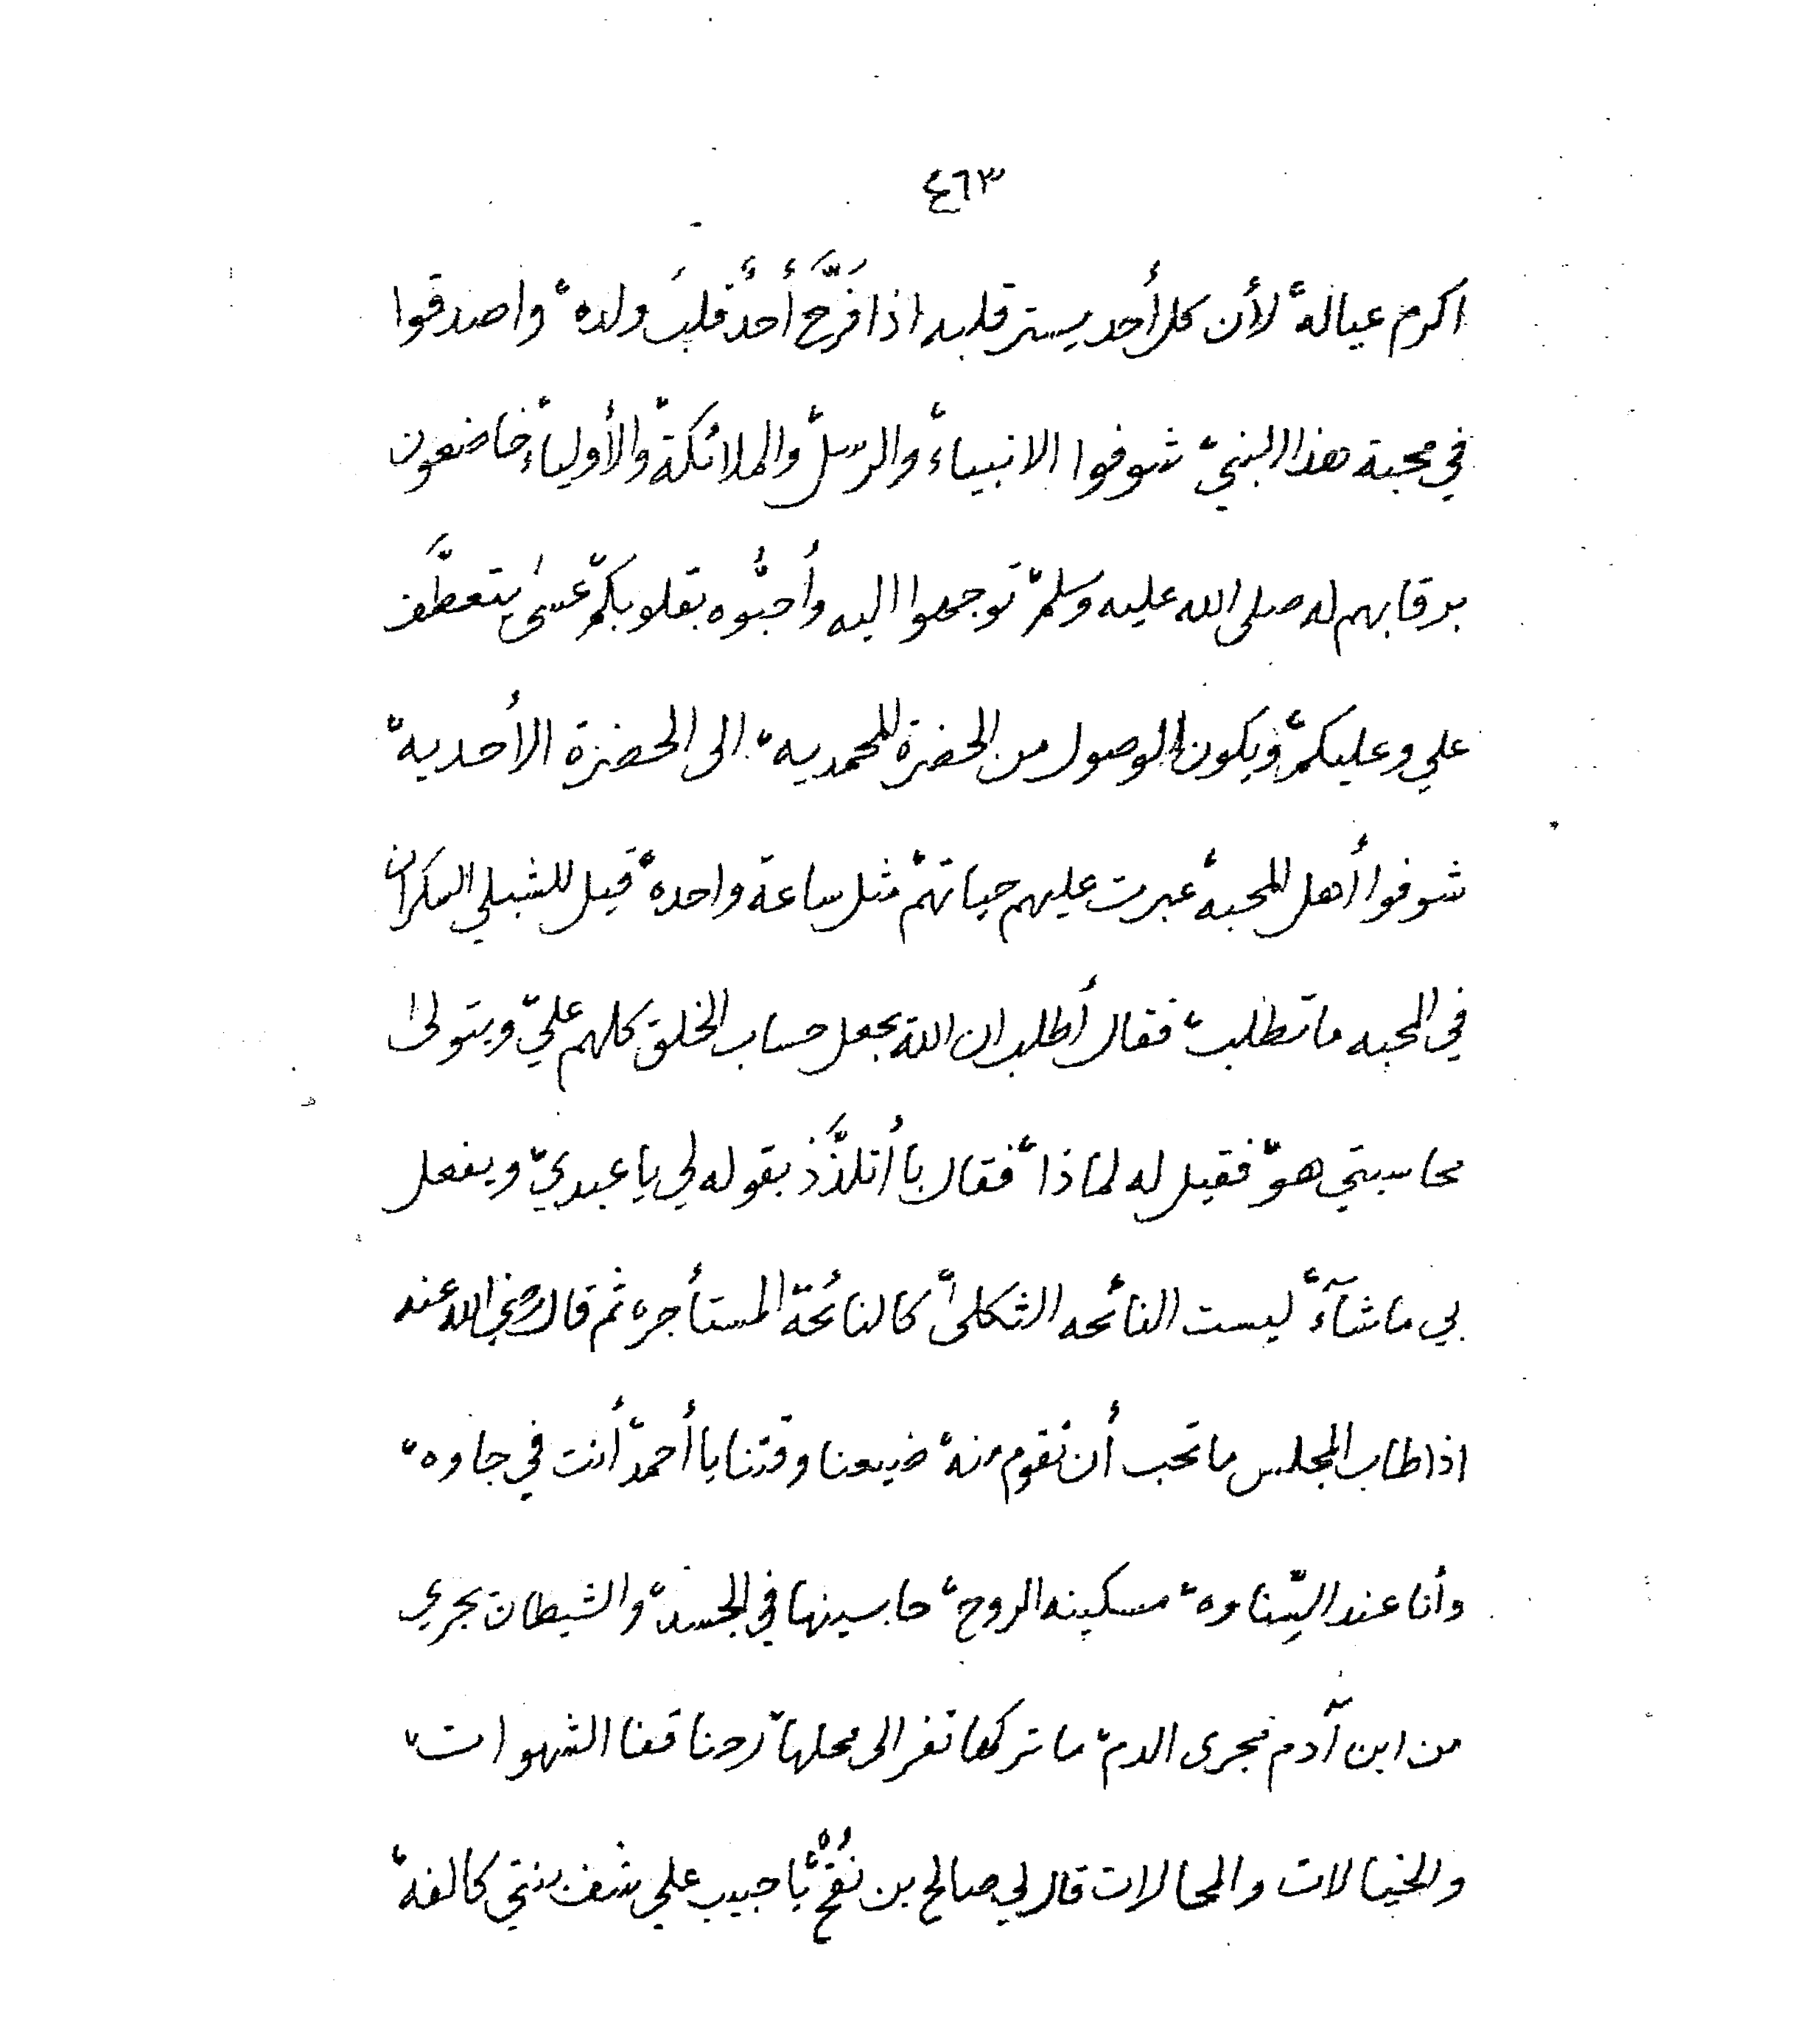 ٤٦٣
اكرم عياله، لأن كل أحد يستر قلبه اذا فَرَّحَ أَحدٌ قلبَ ولده، واصدقوا
في محبة هذا النبي، شوفوا الانبياء، والرسل، والملائكة، والأولياء، خاضعون
برقابهم له صلى الله عليه وسلم، توجهوا اليه وأحبُّوه بقلوبكم، عسى يتعطَّف
علي وعليكم، ويكون الوصول من الحضرة المحمديه، الى الحضرة الأحديه،
شوفوا أهل المحبه، عبرت عليهم حياتهم، مثل ساعة واحده، قيل للشبلي السكران
في المحبه ما تطلب، فقال أطلب ان الله يجعل حساب الخلق كلهم عليّ، ويتولى
محاسبتي هو، فقيل له لماذا، فقال با أتلذَّذ بقوله لي يا عبدي، ويفعل
بي ما شآء، ليست النائحه الثكلى، كالنائحة المستأجره ثم قال رضي الله عنه
اذا طاب المجلس ما تحب أن تقوم منه، ضيعنا وقتنا يا أحمد، أنت في جاوه،
وأنا عند السِّناوه، مسكينه الروح، حابسينها في الجسد، والشيطان يجري
من ابن آدم مجرى الدم، ما تركها تفر الى محلها، ردنا قفا الشهوات،
والخيالات والمحالات قال لي صالح بن نُقُحْ، يا حبيب علي شف بنتي كالفه،